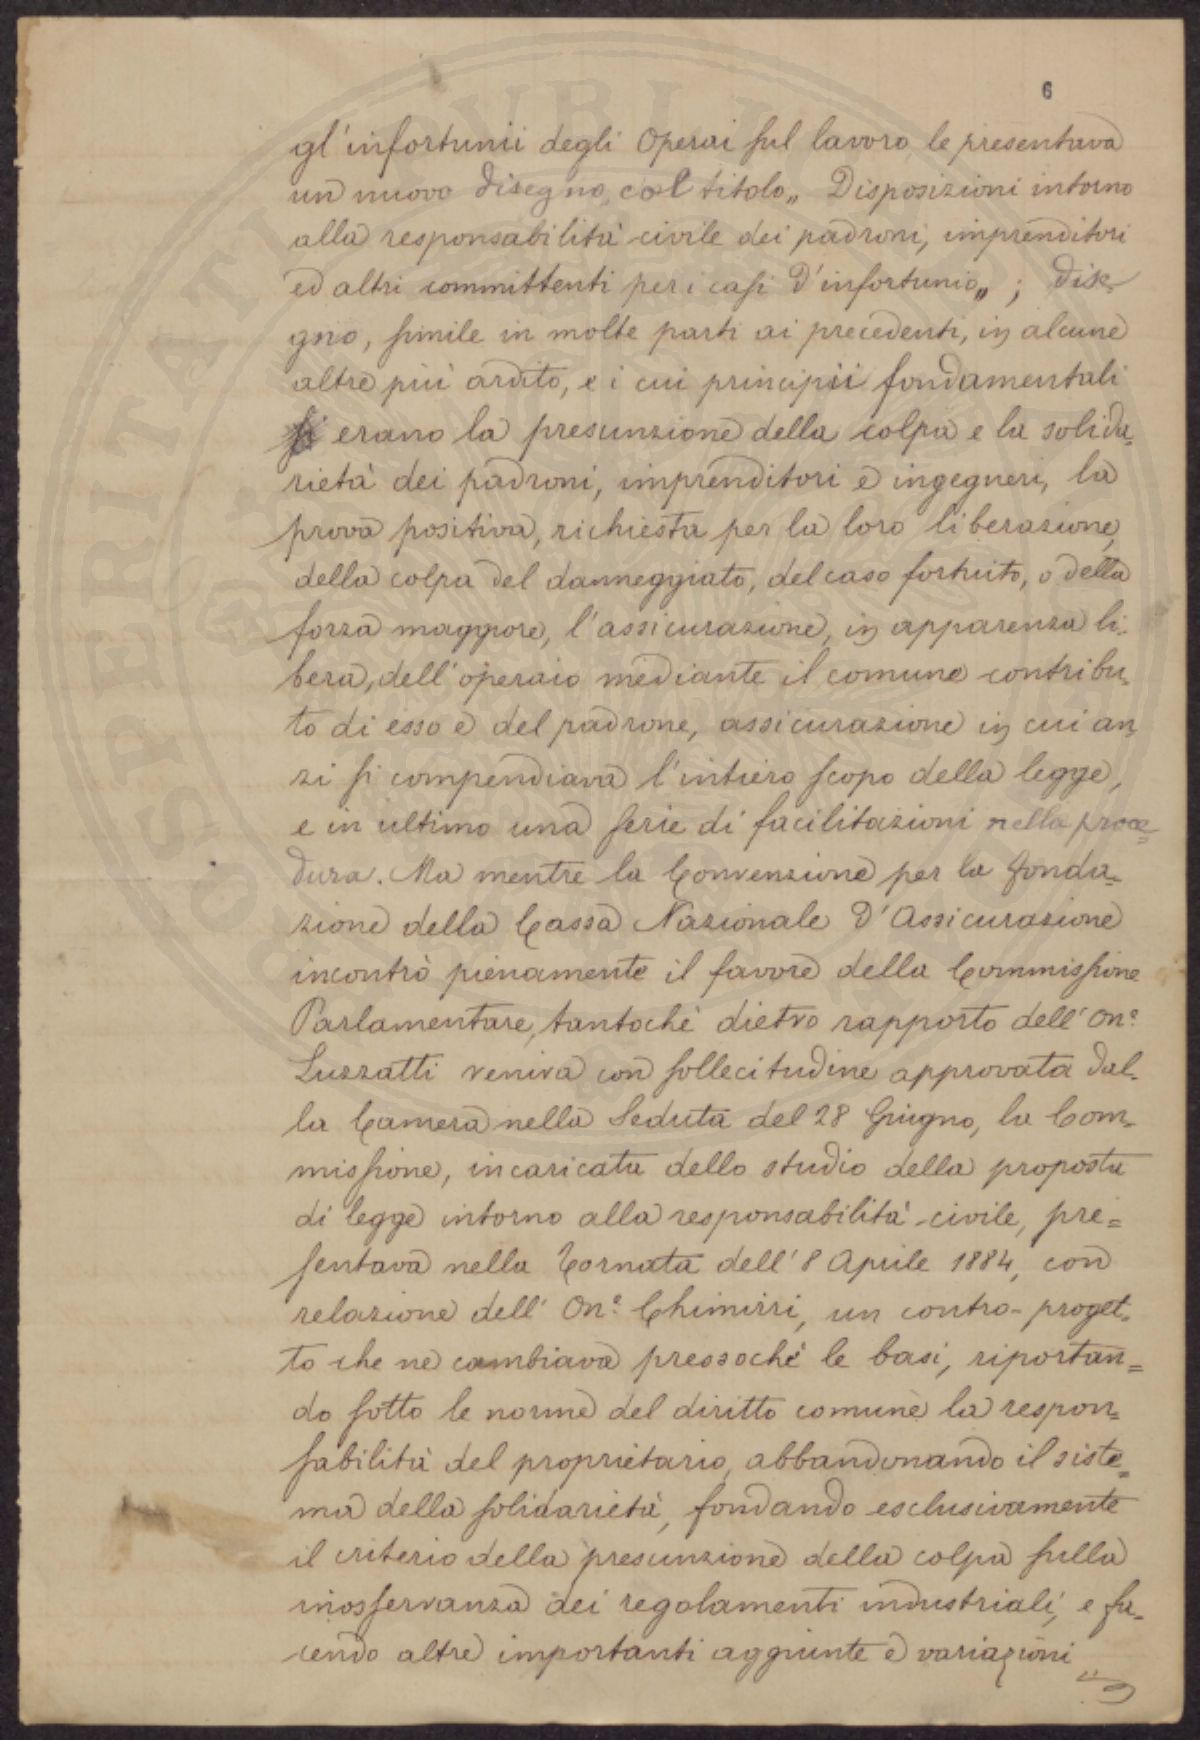 6
gl'infortunii degli Operai sul lavoro, le presentava
un nuovo disegno, col titolo „ Disposizioni intorno
alla responsabilità civile dei padroni, imprenditori
ed altri committenti per i casi d'infortunio „ ; dise-
gno, simile in molte parti ai precedenti, in alcune
altre più ardito, e i cui principii fondamentali
erano la presunzione della colpa e la solida-
rietà dei padroni, imprenditori e ingegneri, la
prova positiva, richiesta per la loro liberazione,
della colpa del danneggiato, del caso fortuito, o della
forza maggiore, l'assicurazione, in apparenza li-
bera, dell'operaio mediante il comune contribu-
to di esso e del padrone, assicurazione in cui an-
zi si compendiava l'intiero scopo della legge,
e in ultimo una serie di facilitazioni nella proce=
dura. Ma mentre la Convenzione per la fonda=
zione della Cassa Nazionale d'Assicurazione
incontrò pienamente il favore della Commissione
Parlamentare, tantochè dietro rapporto dell'On.e
Luzzatti veniva con sollecitudine approvata dal-
la Camera nella Seduta del 28 Giugno, la Com-
missione, incaricata dello studio della proposta
di legge intorno alla responsabilità civile, pre=
sentava nella Tornata dell'8 Aprile 1884, con
relazione dell'On.e Chimirri, un contro-proget-
to che ne cambiava pressochè le basi, riportan=
do sotto le norme del diritto comune la respon=
sabilità del proprietario, abbandonando il siste=
ma della solidarietà, fondando esclusivamente
il criterio della presunzione della colpa sulla
inosservanza dei regolamenti industriali, e fa-
cendo altre importanti aggiunte e variazioni
OSPERITATI PUBLICAE